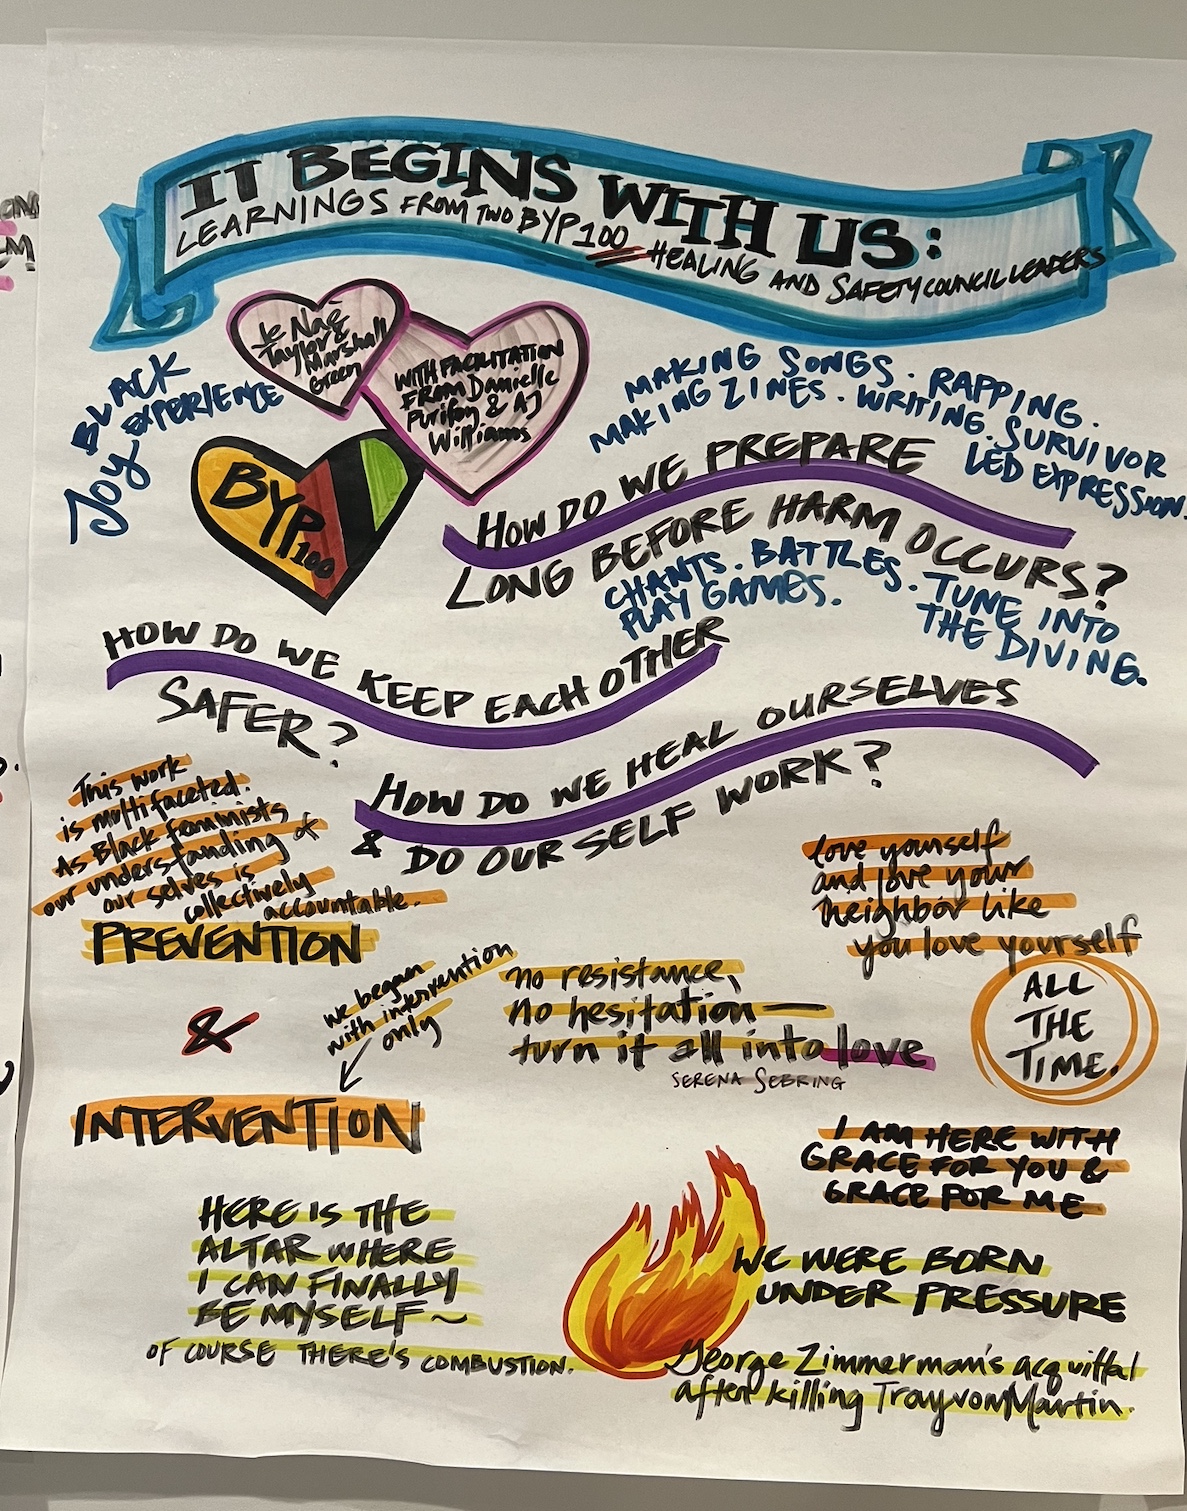 IT BEGINS WITH US:
LEARNINGS FROM TWO BYP100 HEALING AND SAFETY COUNCIL LEADERS
Je Naè
Taylor &
Marshall
Green
WITH FACILITATION
FROM Danielle
Purifoy & AJ
Williams
BLACK
JOY EXPERIENCE
BYP100
MAKING SONGS. RAPPING.
MAKING ZINES. WRITING. SURVIVOR
LED EXPRESSION.
HOW DO WE PREPARE
LONG BEFORE HARM OCCURS?
CHANTS. BATTLES. TUNE INTO
PLAY GAMES. THE DIVING.
HOW DO WE KEEP EACH OTHER
SAFER?
HOW DO WE HEAL OURSELVES
& DO OUR SELF WORK?
This work
is multifaceted.
As Black feminists
our understanding of
our selves is
collectively
accountable.
PREVENTION
&
we began
with intervention
only
INTERVENTION
love yourself
and love your
neighbor like
you love yourself
ALL
THE
TIME.
no resistance,
no hesitation —
turn it all into love
SERENA SEBRING
I AM HERE WITH
GRACE FOR YOU &
GRACE FOR ME
HERE IS THE
ALTAR WHERE
I CAN FINALLY
BE MYSELF ~
OF COURSE THERE'S COMBUSTION.
WE WERE BORN
UNDER PRESSURE
George Zimmerman's acquittal
after killing Trayvon Martin.